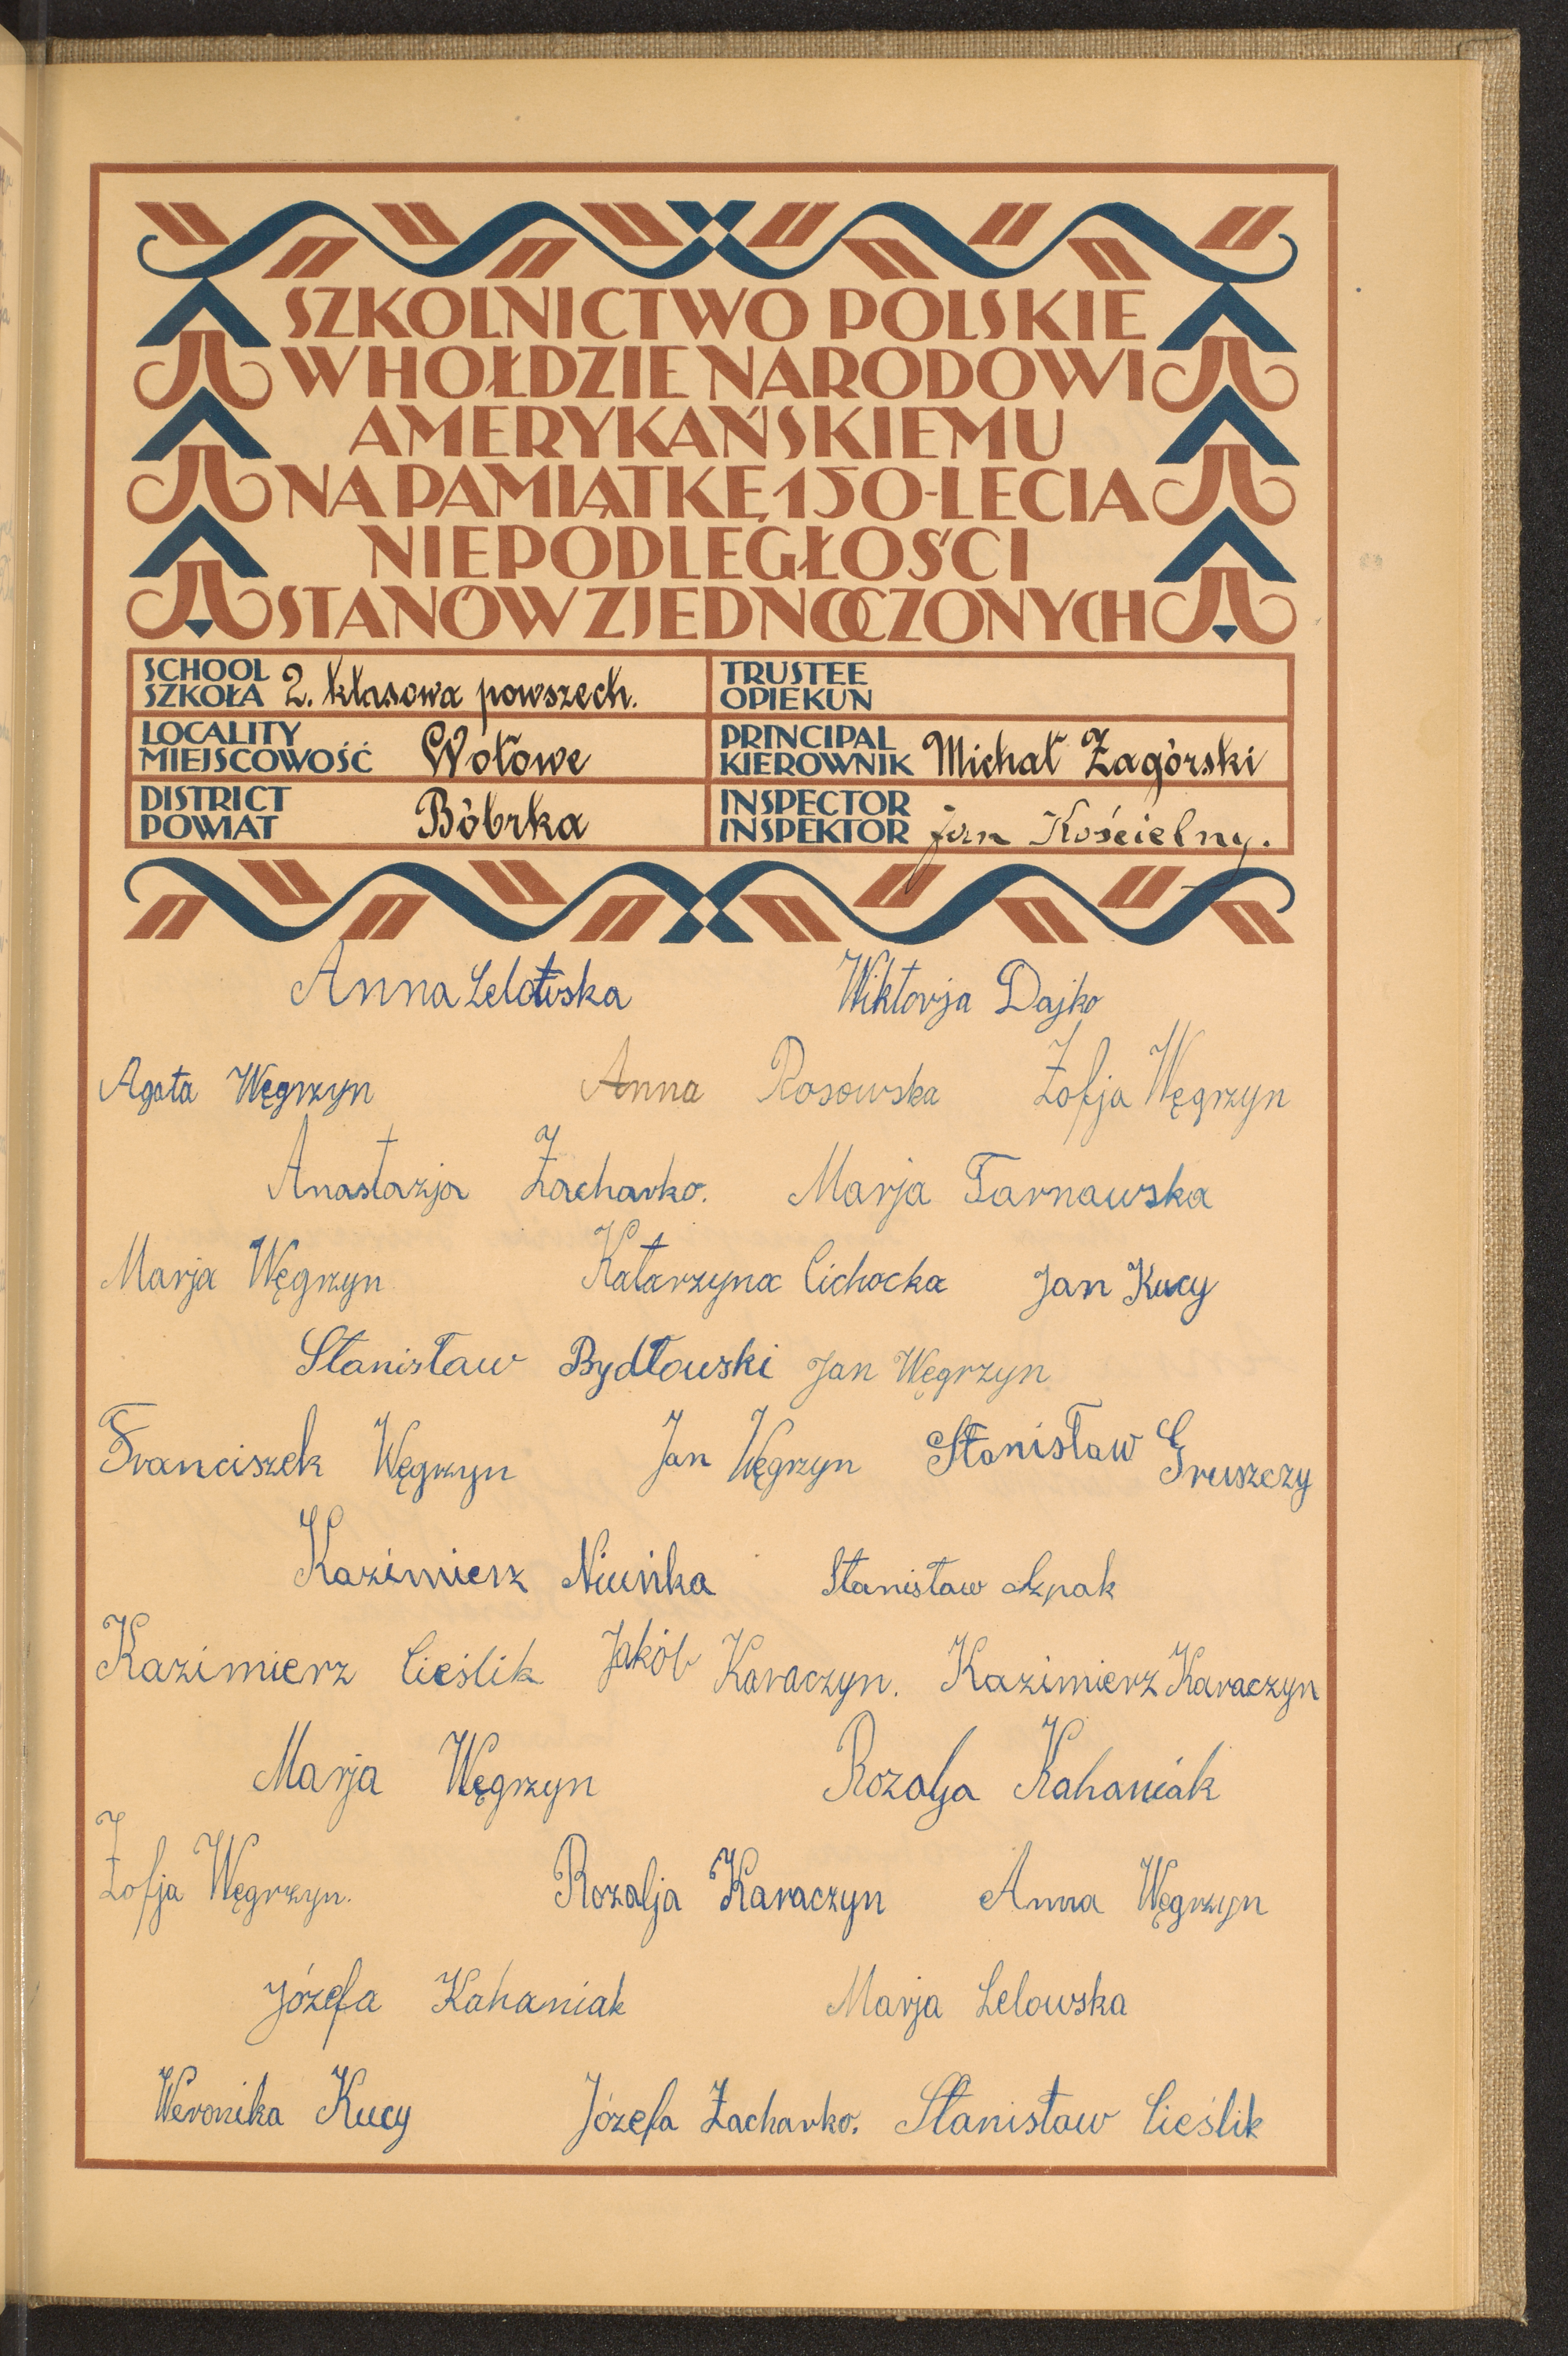 SZKOLNICTWO POLSKIE
W HOŁDZIE NARODOWI
AMERYKAŃSKIEMU
NA PAMIĄTKĘ 150-LECIA
NIEPODLEGŁOŚCI
STANÓW ZJEDNOCZONYCH
SCHOOL
SZKOŁA 2. klasowa powszech.
TRUSTEE
OPIEKUN
LOCALITY
MIEJSCOWOŚĆ Wołowe
PRINCIPAL
KIEROWNIK Michał Zagórski
DISTRICT
POWIAT Bóbrka
INSPECTOR
INSPEKTOR Jan Kościelny.
Anna Lelowska Wiktorja Dajko
Agata Węgrzyn Anna Rosowska Zofja Węgrzyn
Anastazja Zacharko. Marja Tarnawska
Marja Węgrzyn Katarzyna Cichocka Jan Kucy
Stanisław Bydłowski Jan Węgrzyn
Franciszek Węgrzyn Jan Węgrzyn Stanisław Gruszczy
Kazimierz Niuńka Stanisław
Kazimierz Cieślik Jakób Karaczyn. Kazimierz Karaczyn
Marja Węgrzyn Rozalja Kahaniak
Zofja Węgrzyn. Rozalja Karaczyn Anna Węgrzyn
Józefa Kahaniak Marja Lelowska
Weronika Kucy Józefa Zacharko. Stanisław Cieślik